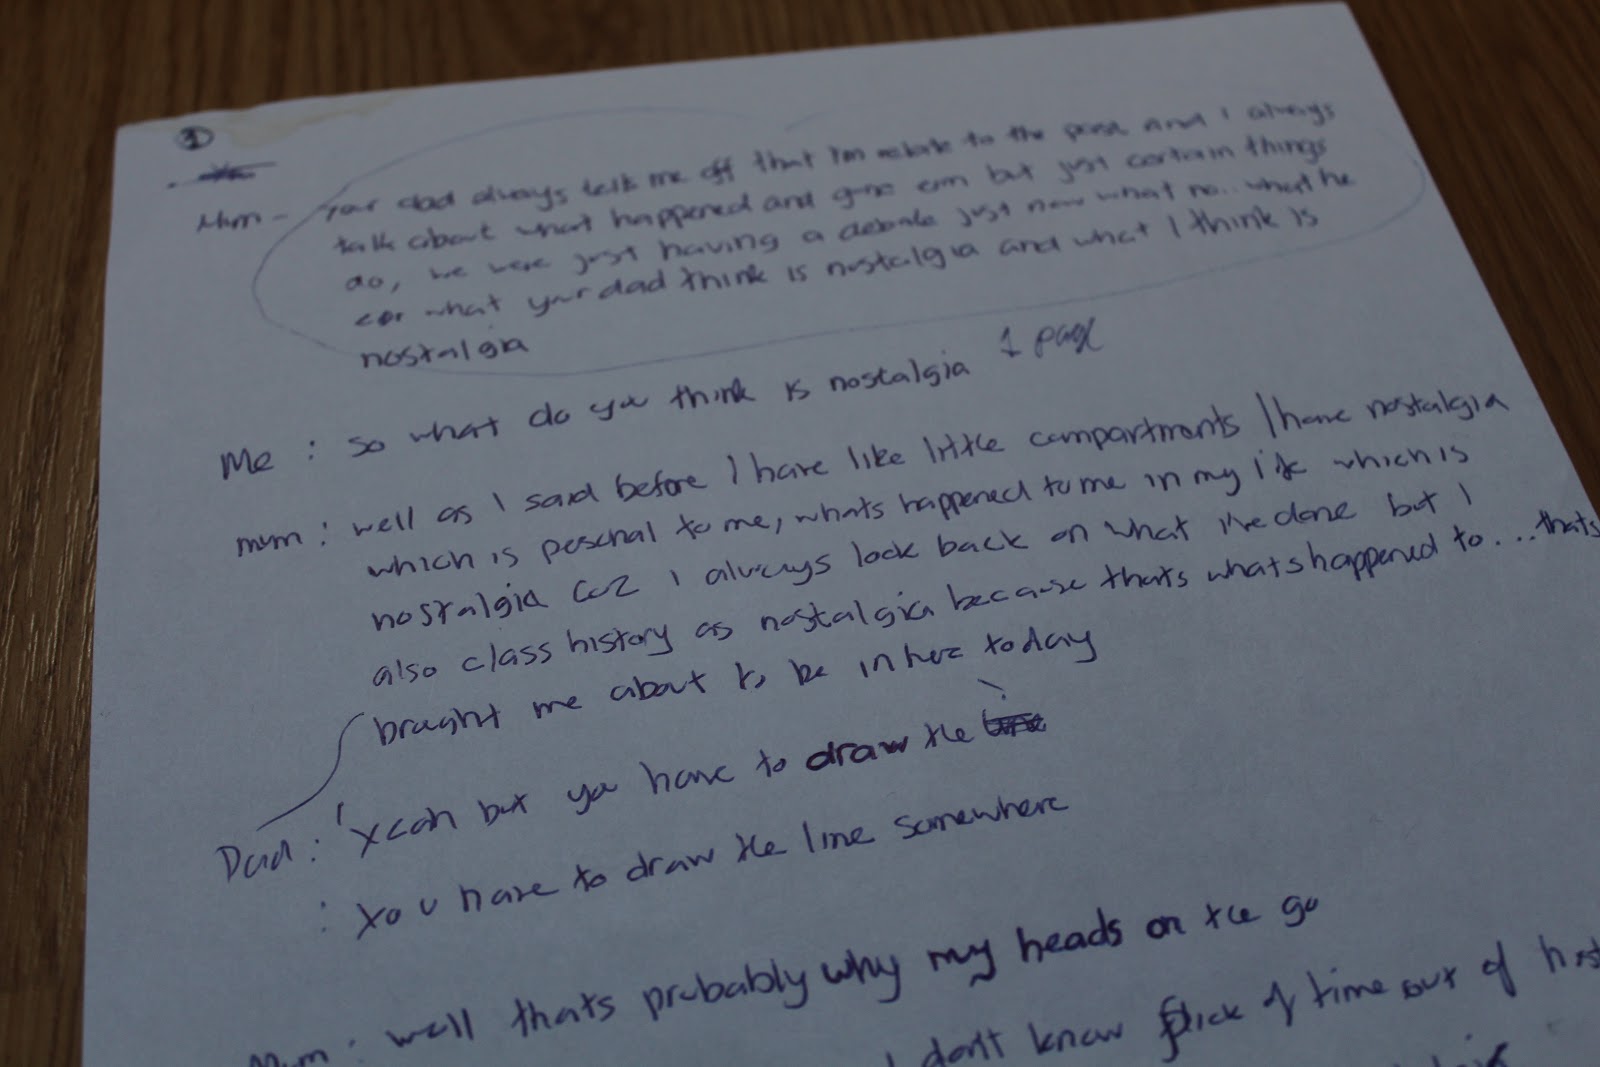 1
Mum - Your dad always tells me off that I'm relate to the past and I always
talk about what happened and gone but just certain things
do, we were just having a debate just now what no.. what he
cor what your dad think is nostalgia and what I think is
nostalgia
1 page
Me : so what do you think is nostalgia
mum : well as I said before I have like little compartments I have nostalgia
which is pesonal to me, whats happened to me in my life which is
nostalgia coz I always look back on what i've done but I
also class history as nostalgia because thats whats happened to... thats
braught me about to be in here today
Dad : 'Yeah but you have to draw the line
: You have to draw the line somewhere
Mum : well thats probably why my heads on the go
I don't know flick of time out of